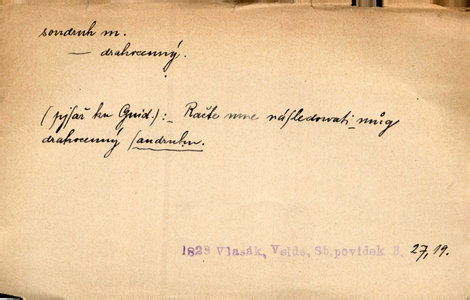 soudruh m.
— drahocenný.
(pjſař ku Guid.) :_ Račte mne náſledowati_můg
drahocenný ſaudruhu.
1823 Vlasák, Velde, Sb.povídek 3. 27, 19.